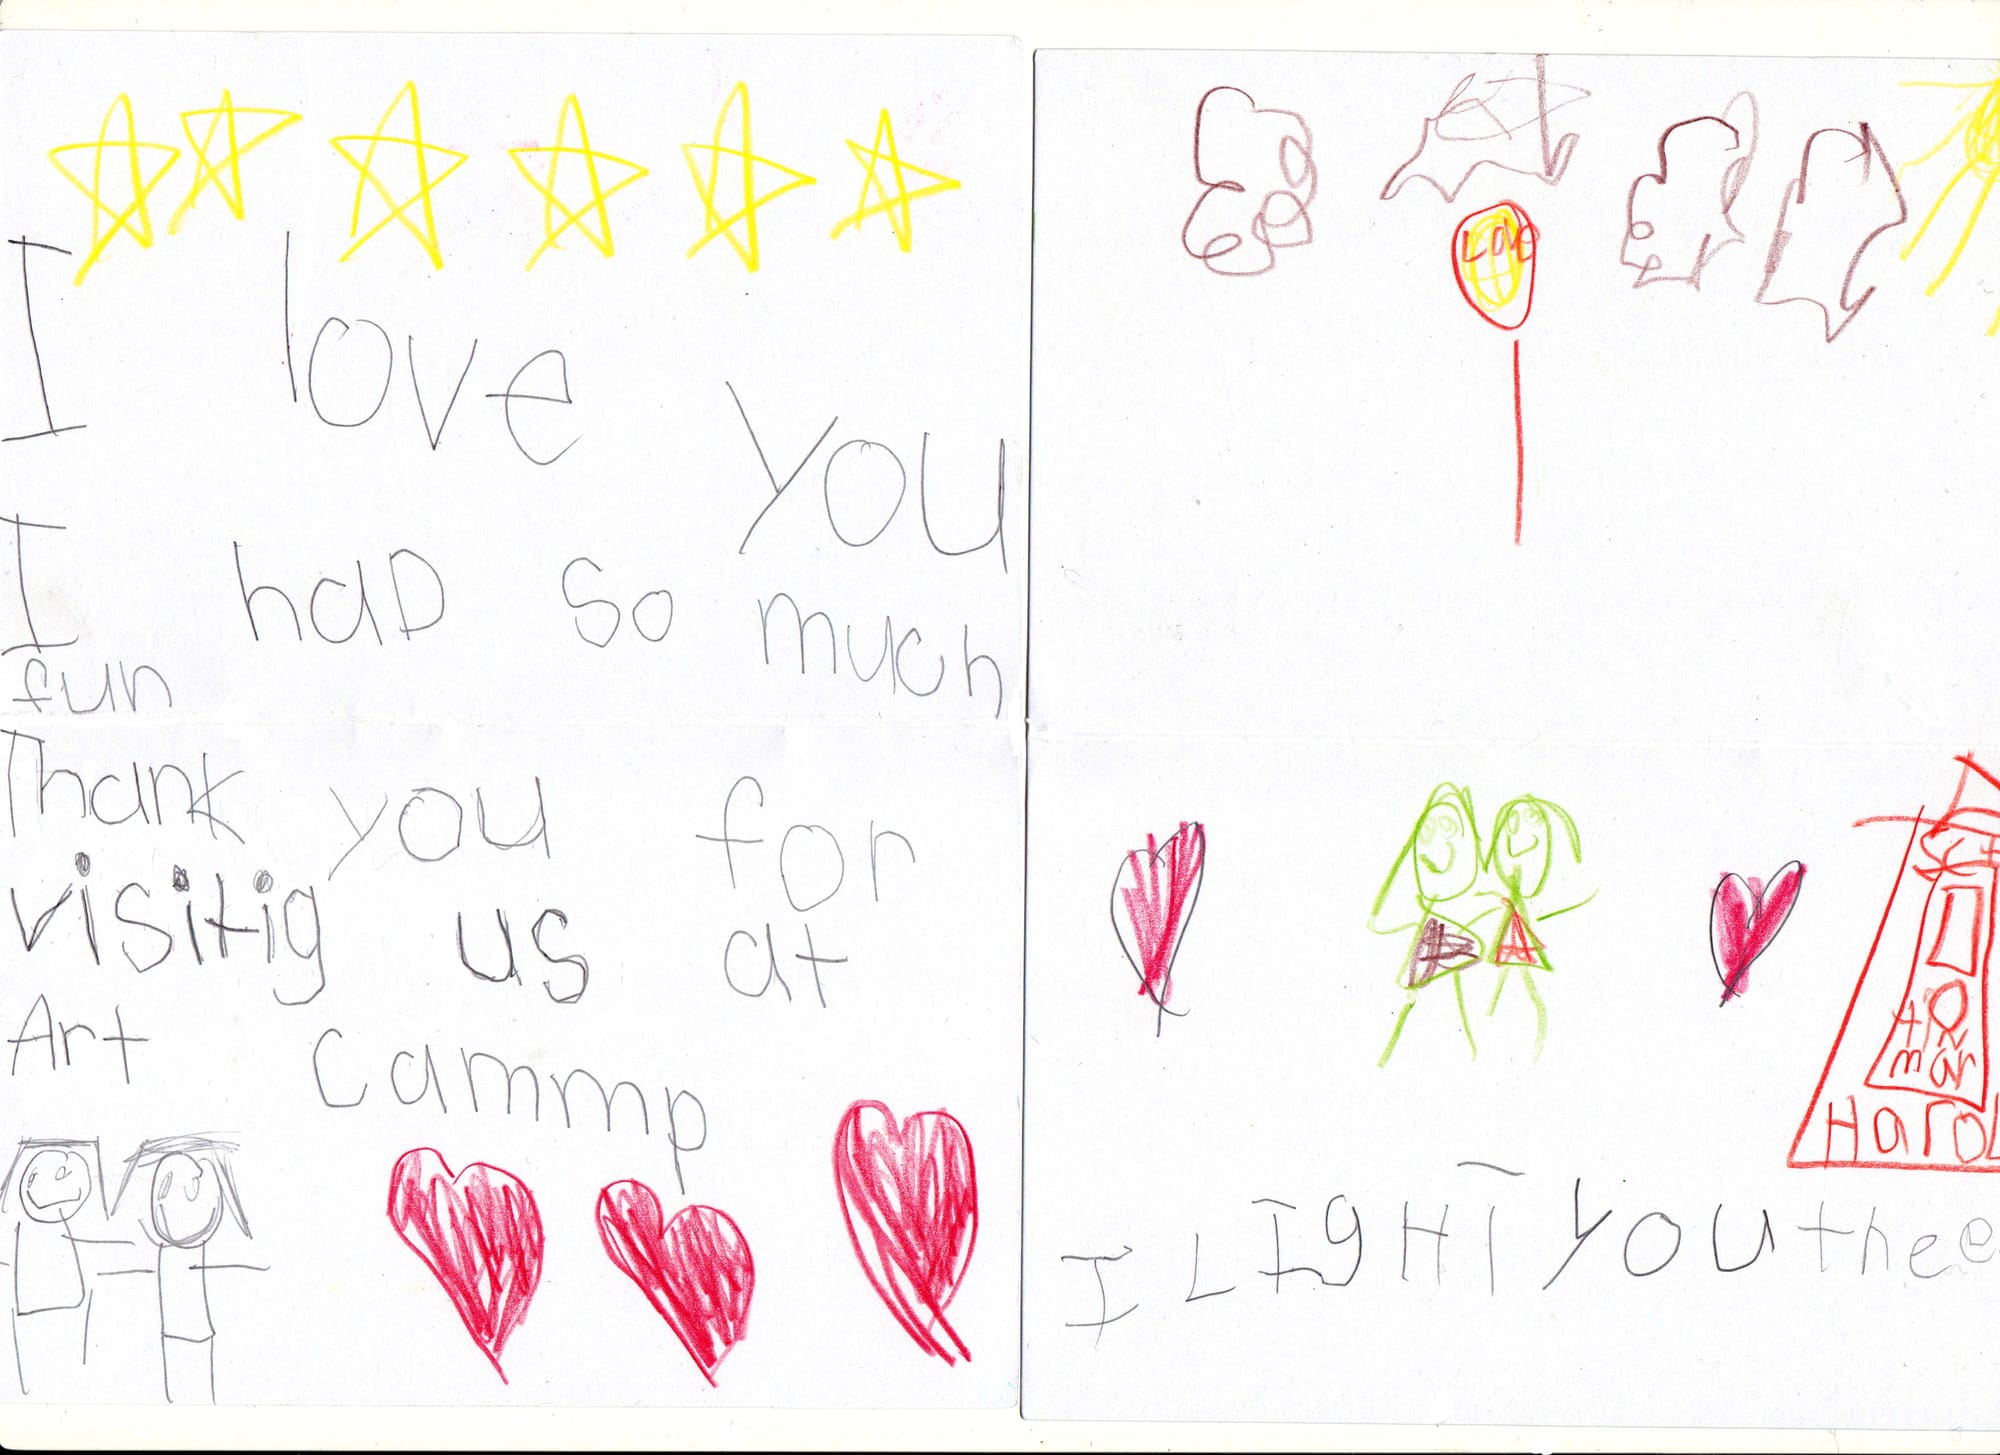 I love you
I had so much
fun
Thank you for
visitig us at
Art cammp
Love
B A
mar
Harol
I LIgHT you thee